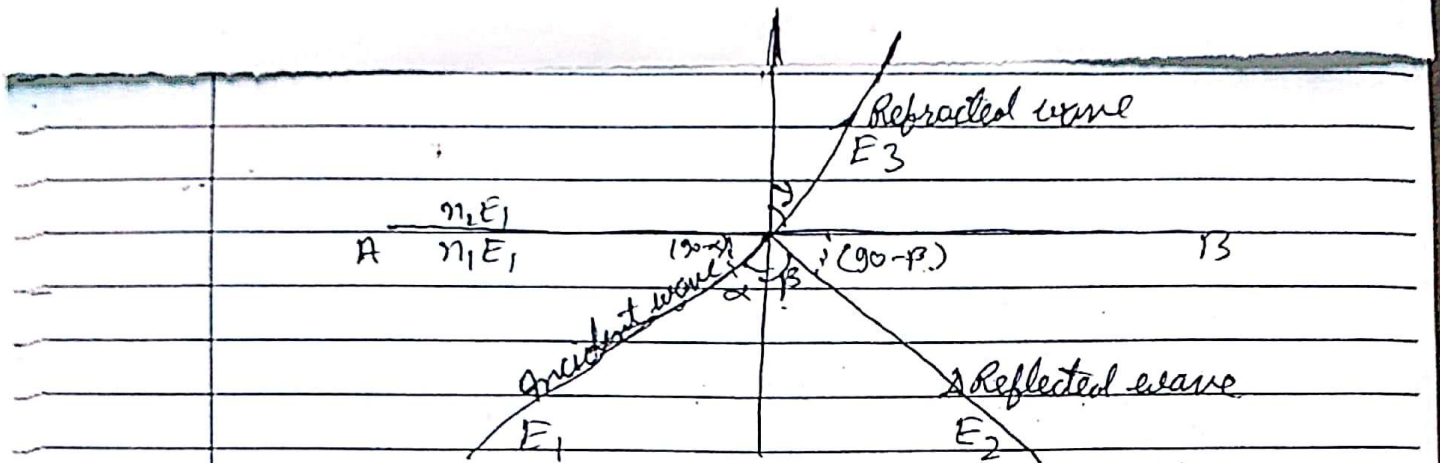 Refracted wave
E3
n₂E₁
A n₁E₁ (90-α) (90-β) B
α β
Incident wave
Reflected wave
E₁ E₂